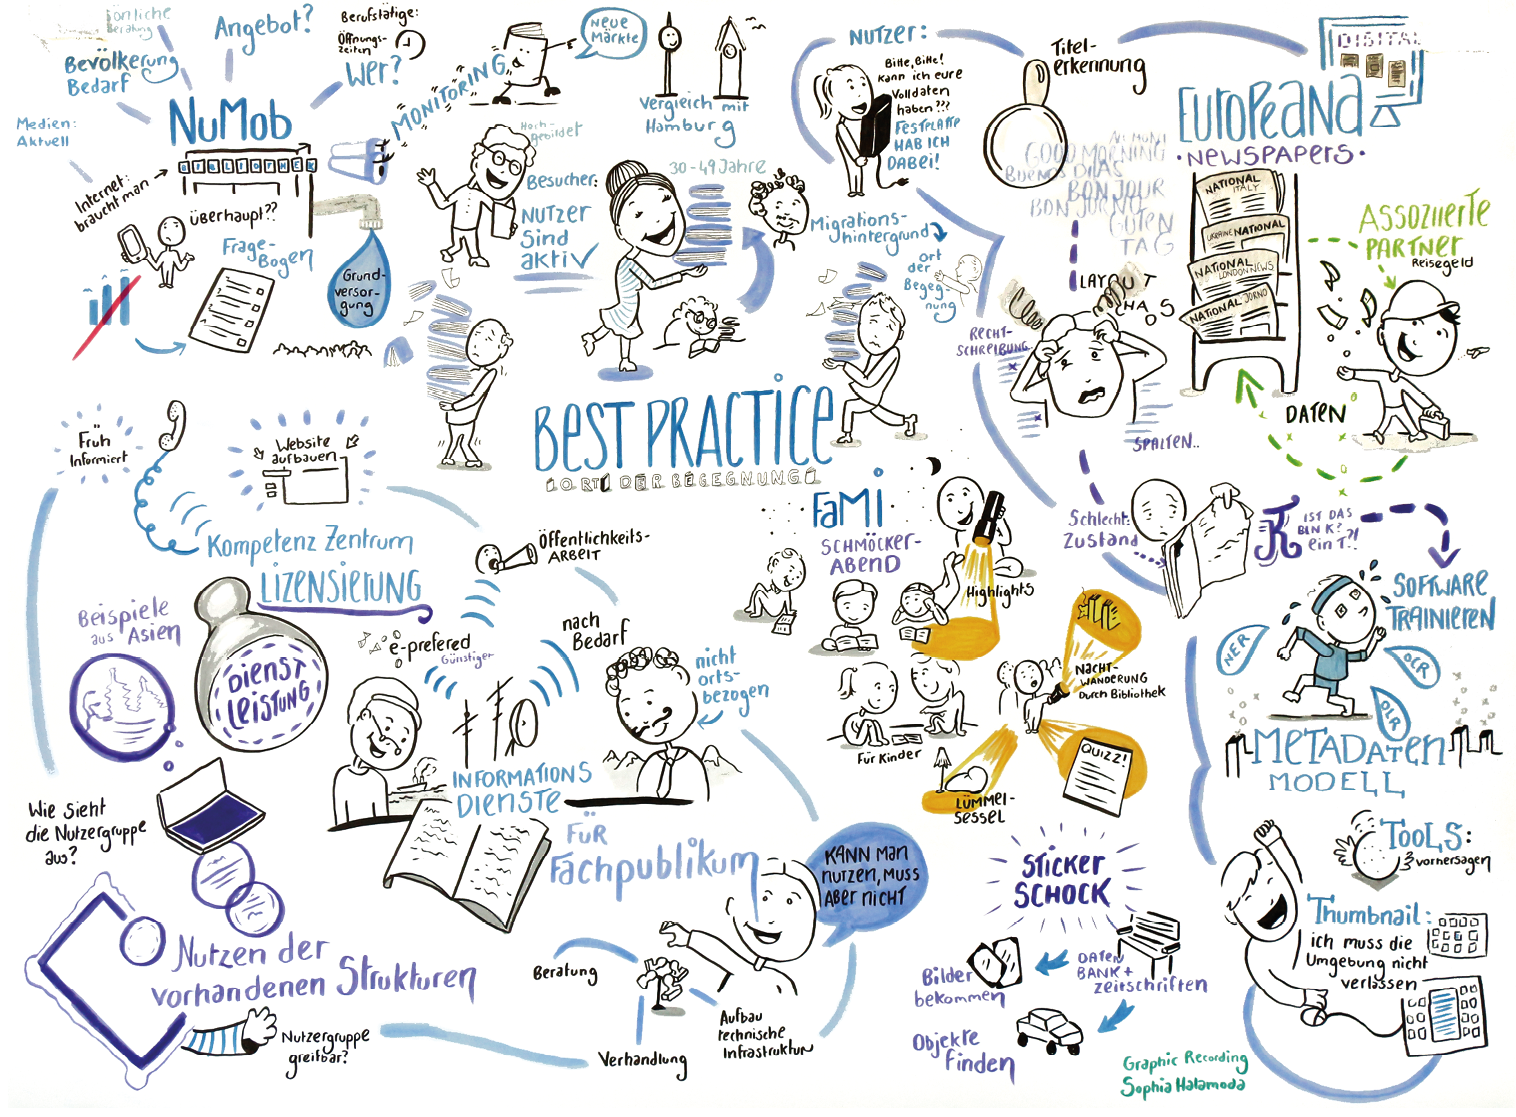 önliche
Beratung
Bevölkerung
Bedarf
Angebot?
Berufstätige:
Öffnungs-
zeiten
Wer?
Medien:
Aktuell
NuMob
BIBLIOTHEK
Internet:
braucht man
überhaupt??
Frage-
Bogen
Grund-
versor-
gung
MONITORING
NEUE
MÄRKTE
Vergleich mit
Hamburg
Hoch-
gebildet
Besucher:
NUTZER
Sind
aktiv
30-49 Jahre
Migrations-
hintergrund
ort
der
Begeg-
nung
NUTZER:
Bitte, Bitte!
Kann ich eure
Volldaten
haben???
FESTPLATTE
HAB ICH
DABEI!
Titel-
erkennung
GOOD MORNING
BUENOS DIAS
BONJOUR
BON JORNO
GUTEN
TAG
DIGITAL
EUROPEANA
·NEWSPAPERS·
NATIONAL
ITALY
UKRAINE NATIONAL
NATIONAL
LONDON NEWS
NATIONAL JORNO
ASSOZIIERTE
PARTNER
Reisegeld
DATEN
LAYOUT
CHAOS
RECHT-
SCHREIBUNG..
SPALTEN..
BEST PRACTICE
ORT DER BEGEGNUNG
Früh
Informiert
Website
aufbauen
Kompetenz Zentrum
LIZENSIERUNG
Öffentlichkeits-
ARBEIT
Beispiele
aus Asien
DIENST
LEISTUNG
e-prefered
Günstiger
nach
Bedarf
nicht
orts-
bezogen
INFORMATIONS
DIENSTE
FÜR
Fachpublikum
Wie sieht
die Nutzergruppe
aus?
Nutzen der
vorhandenen Strukturen
Nutzergruppe
greifbar?
KANN man
nutzen, muss
ABER nicht
Beratung
Verhandlung
Aufbau
technische
Infrastruktur
FaMi
SCHMÖCKER-
ABEND
Highlights
Für Kinder
NACHT-
WANDERUNG
Durch Bibliothek
LÜMMEL-
SESSEL
QUIZZ!
Schlecht:
Zustand
K
IST DAS
EIN K?
ein T?!
SOFTWARE
TRAINIEREN
NER
OCR
OLR
METADATEN
MODELL
STICKER
SCHOCK
DATEN
BANK+
zeitschriften
Bilder
bekommen
Objekte
finden
TOOLS:
vorhersagen
Thumbnail:
ich muss die
Umgebung nicht
verlassen
Graphic Recording
Sophia Halamoda